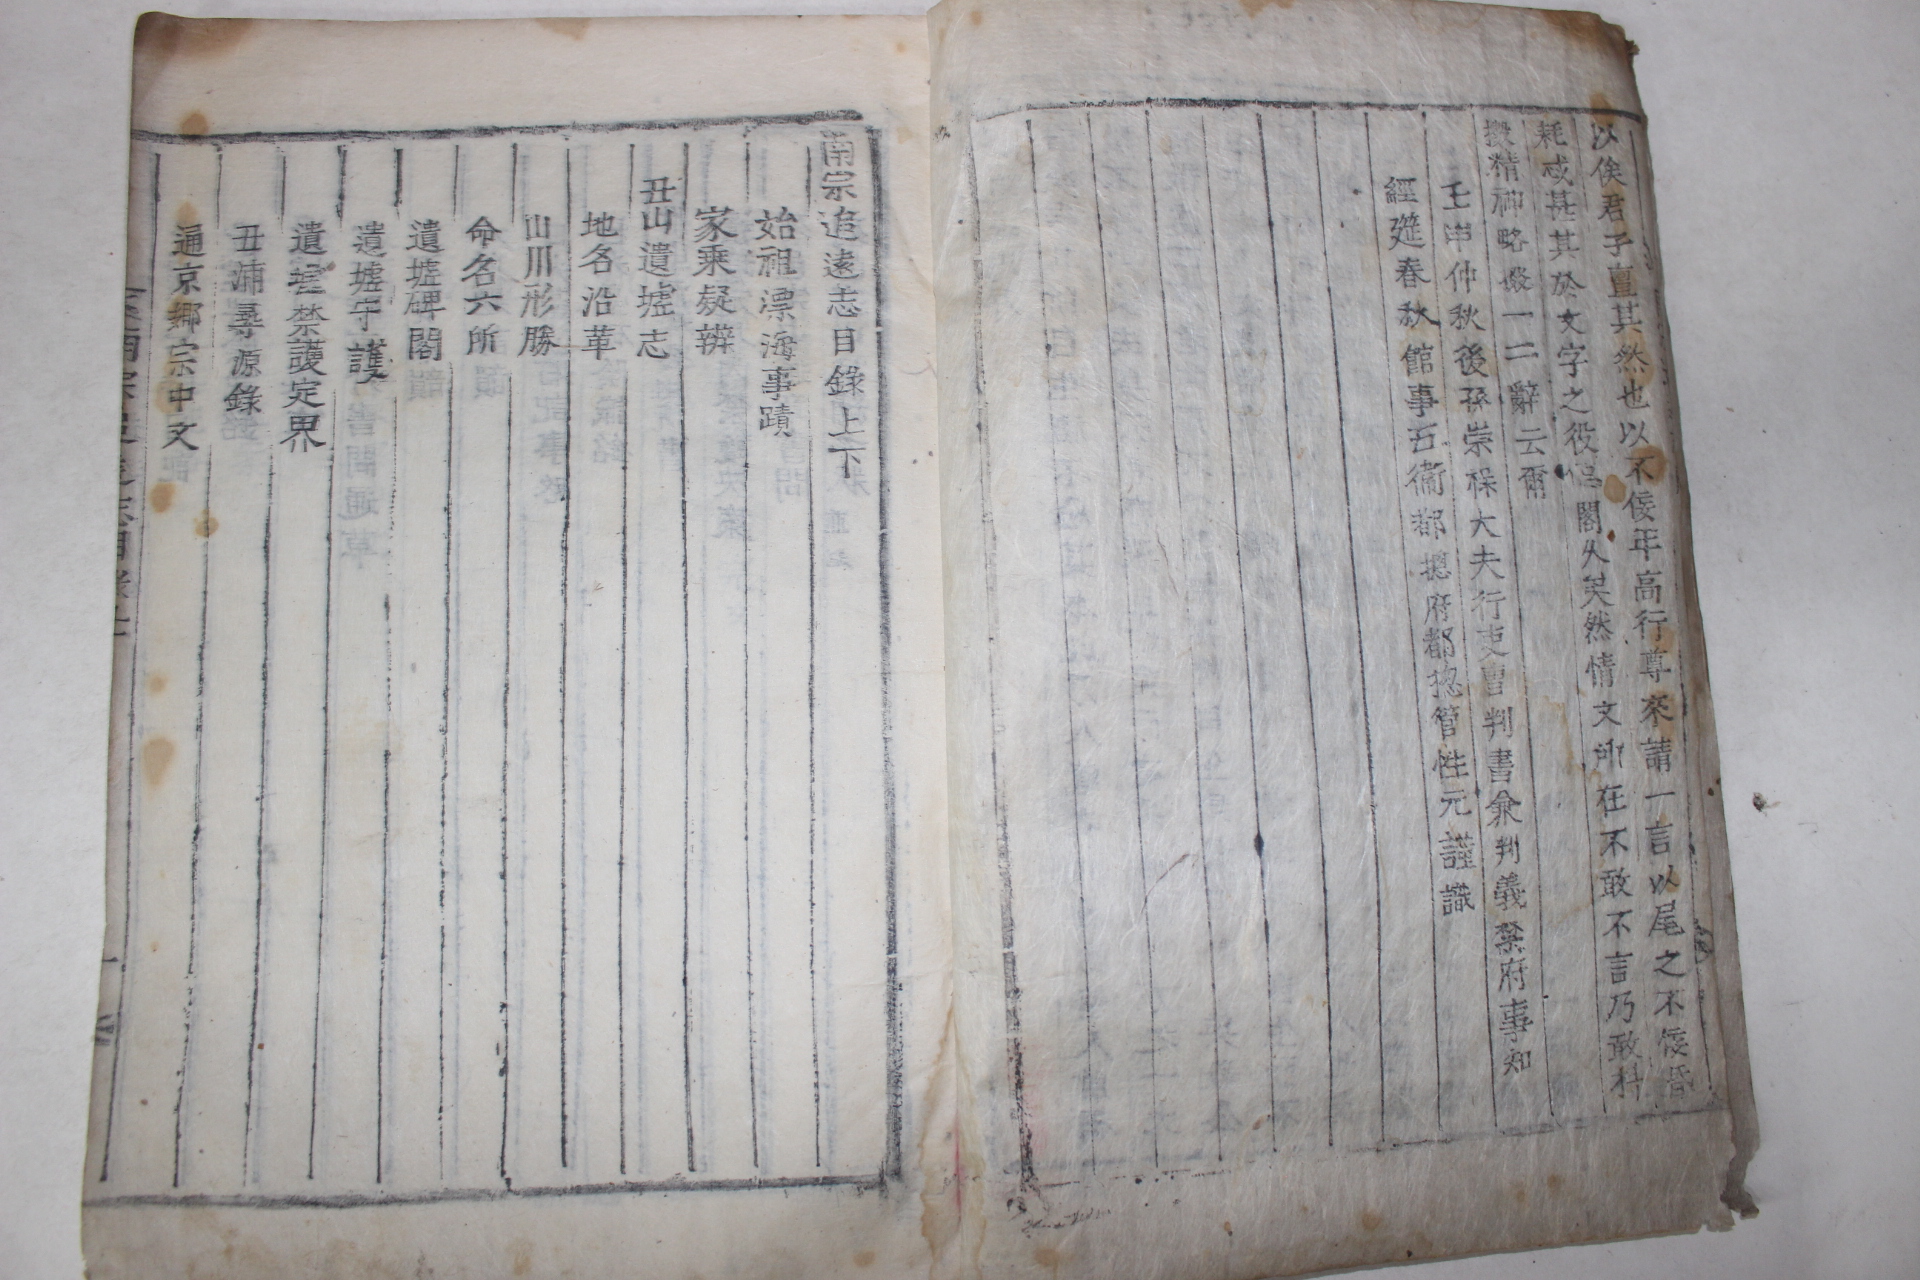 以俟君子亶其然也以不佞年高行尊來請一言以尾之不佞昏
耗忒甚其於文字之役閣久矣然情文所在不敢不言乃敢抖
擻精神略綴一二辭云爾
壬申仲秋後孫崇祿大夫行吏曹判書兼判義禁府事知
經筵春秋館事五衛都摠府都摠管性元謹識
南宗追遠志目錄上下
始祖漂海事蹟
家乘疑辨
丑山遺墟志
地名沿革
山川形勝
命名六所
遺墟碑閣
遺墟守護
遺墟禁護定界
丑浦尋源錄
通京鄉宗中文